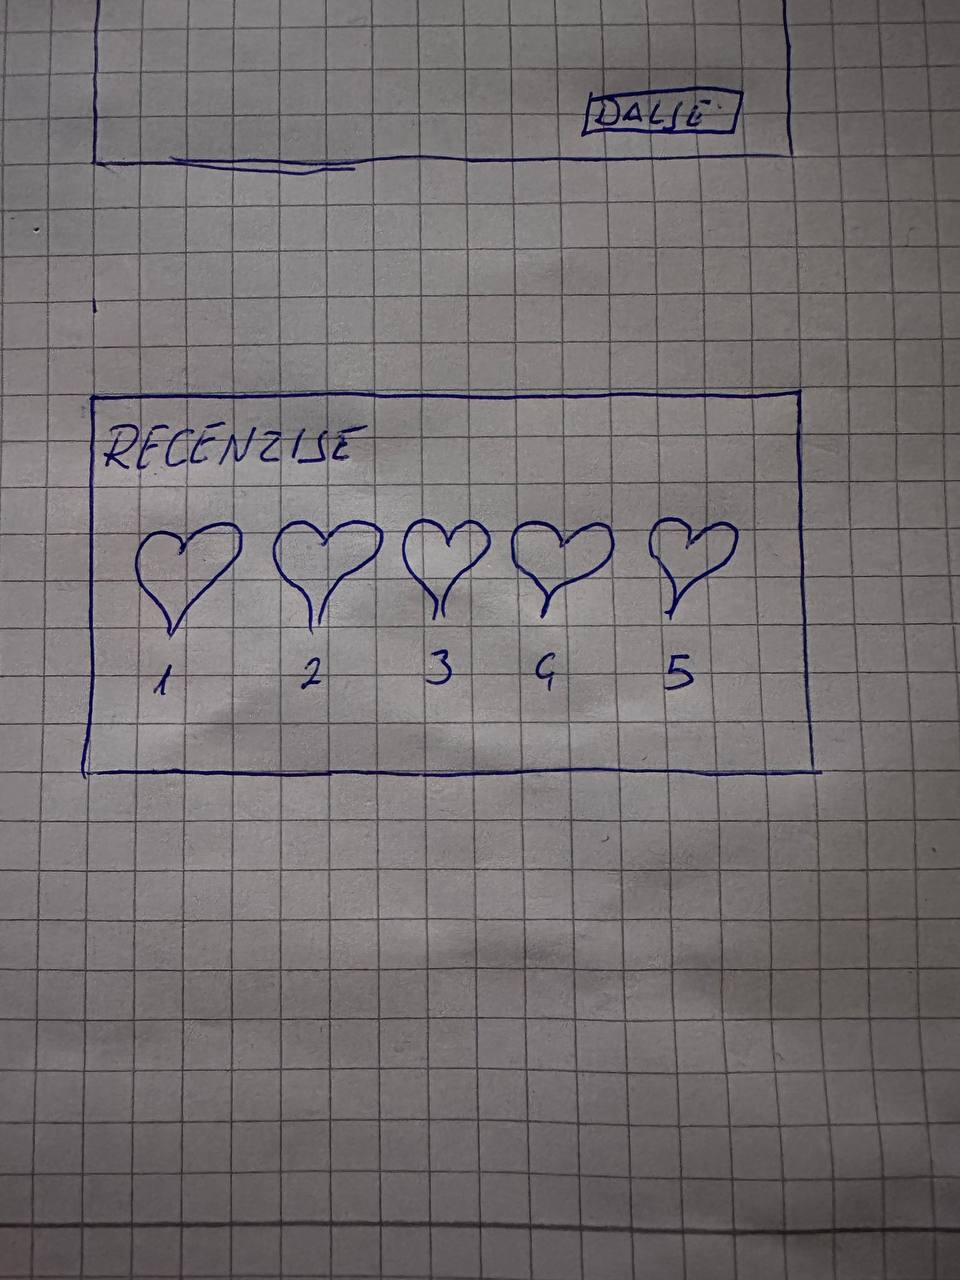 DALJE
RECENZIJE
1 2 3 4 5